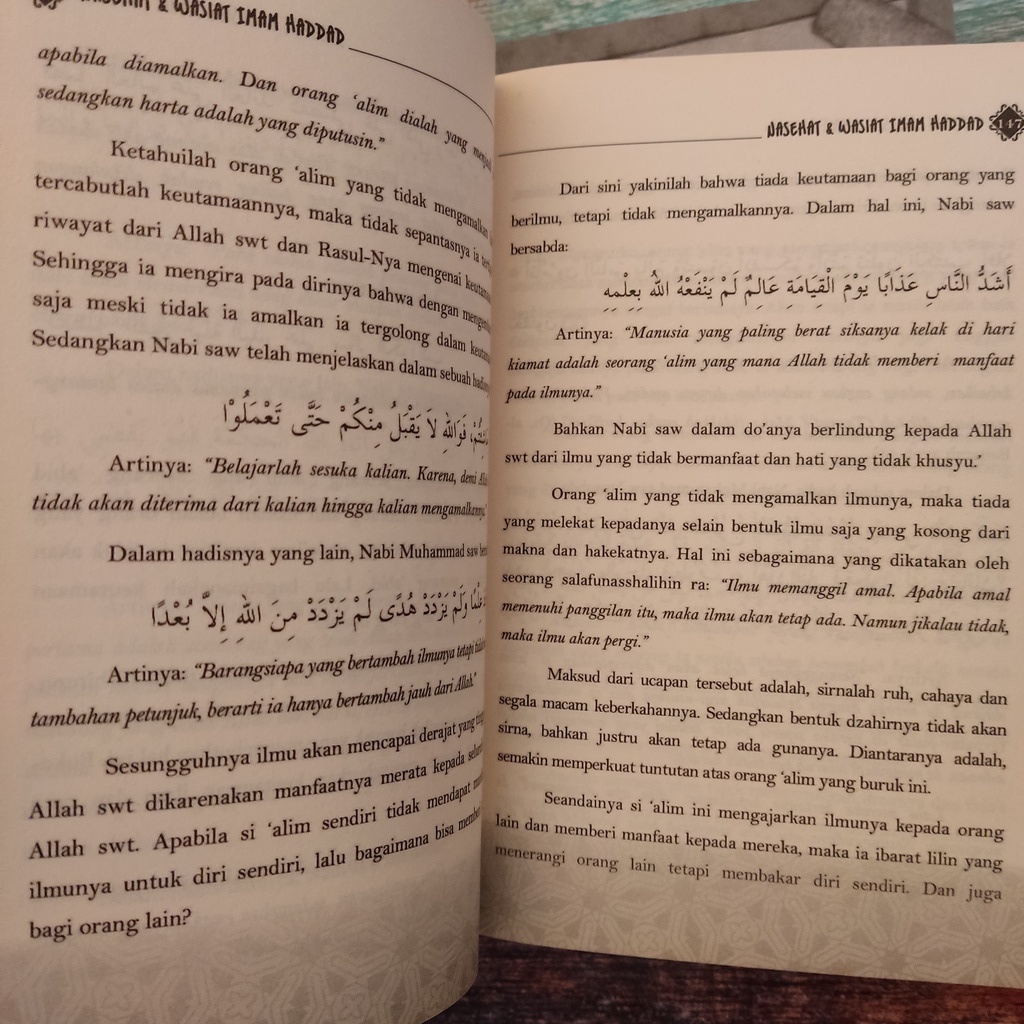 & WASIAT IMAM HADDAD
apabila diamalkan. Dan orang ‘alim dialah yang
sedangkan harta adalah yang diputusin.”
Ketahuilah orang ‘alim yang tidak mengamalkan
tercabutlah keutamaannya, maka tidak sepantasnya ia
riwayat dari Allah swt dan Rasul-Nya mengenai
Sehingga ia mengira pada dirinya bahwa dengan
saja meski tidak ia amalkan ia tergolong dalam
Sedangkan Nabi saw telah menjelaskan dalam sebuah
فَوَاللهِ لاَ يَقْبَلُ مِنْكُمْ حَتَّى تَعْمَلُوْا
Artinya: “Belajarlah sesuka kalian. Karena, demi
tidak akan diterima dari kalian hingga kalian mengamalkannya.”
Dalam hadisnya yang lain, Nabi Muhammad saw
وَلَمْ يَزْدَدْ هُدًى لَمْ يَزْدَدْ مِنَ اللهِ إِلاَّ بُعْدًا
Artinya: “Barangsiapa yang bertambah ilmunya tetapi
tambahan petunjuk, berarti ia hanya bertambah jauh dari Allah.”
Sesungguhnya ilmu akan mencapai derajat yang
Allah swt dikarenakan manfaatnya merata kepada
Allah swt. Apabila si ‘alim sendiri tidak mendapat
ilmunya untuk diri sendiri, lalu bagaimana bisa
bagi orang lain?
NASEHAT & WASIAT IMAM HADDAD 147
Dari sini yakinilah bahwa tiada keutamaan bagi orang yang
berilmu, tetapi tidak mengamalkannya. Dalam hal ini, Nabi saw
bersabda:
أَشَدُّ النَّاسِ عَذَابًا يَوْمَ الْقِيَامَةِ عَالِمٌ لَمْ يَنْفَعْهُ اللهُ بِعِلْمِهِ
Artinya: “Manusia yang paling berat siksanya kelak di hari
kiamat adalah seorang ‘alim yang mana Allah tidak memberi manfaat
pada ilmunya.”
Bahkan Nabi saw dalam do’anya berlindung kepada Allah
swt dari ilmu yang tidak bermanfaat dan hati yang tidak khusyu.’
Orang ‘alim yang tidak mengamalkan ilmunya, maka tiada
yang melekat kepadanya selain bentuk ilmu saja yang kosong dari
makna dan hakekatnya. Hal ini sebagaimana yang dikatakan oleh
seorang salafunasshalihin ra: “Ilmu memanggil amal. Apabila amal
memenuhi panggilan itu, maka ilmu akan tetap ada. Namun jikalau tidak,
maka ilmu akan pergi.”
Maksud dari ucapan tersebut adalah, sirnalah ruh, cahaya dan
segala macam keberkahannya. Sedangkan bentuk dzahirnya tidak akan
sirna, bahkan justru akan tetap ada gunanya. Diantaranya adalah,
semakin memperkuat tuntutan atas orang ‘alim yang buruk ini.
Seandainya si ‘alim ini mengajarkan ilmunya kepada orang
lain dan memberi manfaat kepada mereka, maka ia ibarat lilin yang
menerangi orang lain tetapi membakar diri sendiri. Dan juga